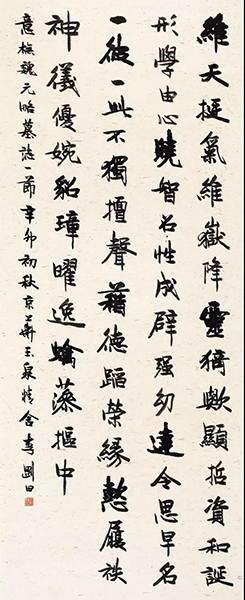 維天挺氣維嶽降靈猗歟顯哲資和誕
形學由心曉智名性成辟强幼達令思早名
一彼一此不獨擅聲藉德蹈榮緣懃履袟
神儀優婉貂璋曜逸藻摳中
意橅魏元略墓誌一節辛卯初秋京華玉泉精舍李剛田